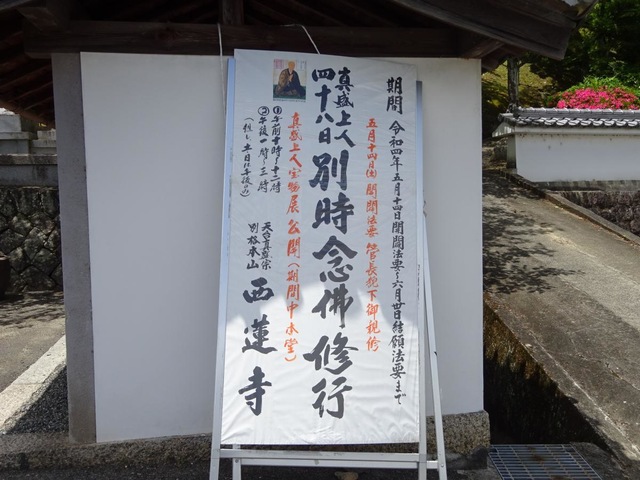 期間 令和四年五月十四日開闢法要〜六月卅日結願法要まで
五月十四日(土)開闢法要 管長猊下御親修
真盛上人
四十八日別時念佛修行
真盛上人宝物展公開(期間中本堂)
①午前十時〜十二時
②午後一時〜三時
(但し土日は午後のみ)
天台真盛宗
別格本山
西蓮寺